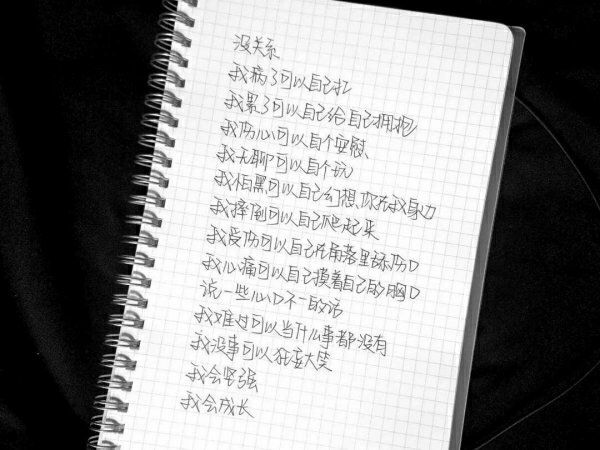 没关系
我病了可以自己扛
我累了可以自己给自己拥抱
我伤心可以自个安慰
我无聊可以自个玩
我怕黑可以自己幻想、你在我身边
我摔倒可以自己爬起来
我受伤可以自己在角落里舔伤口
我心痛可以自己摸着自己的胸口
说一些心口不一的话
我难过可以当什么事都没有
我没事可以狂妄大笑
我会坚强
我会成长